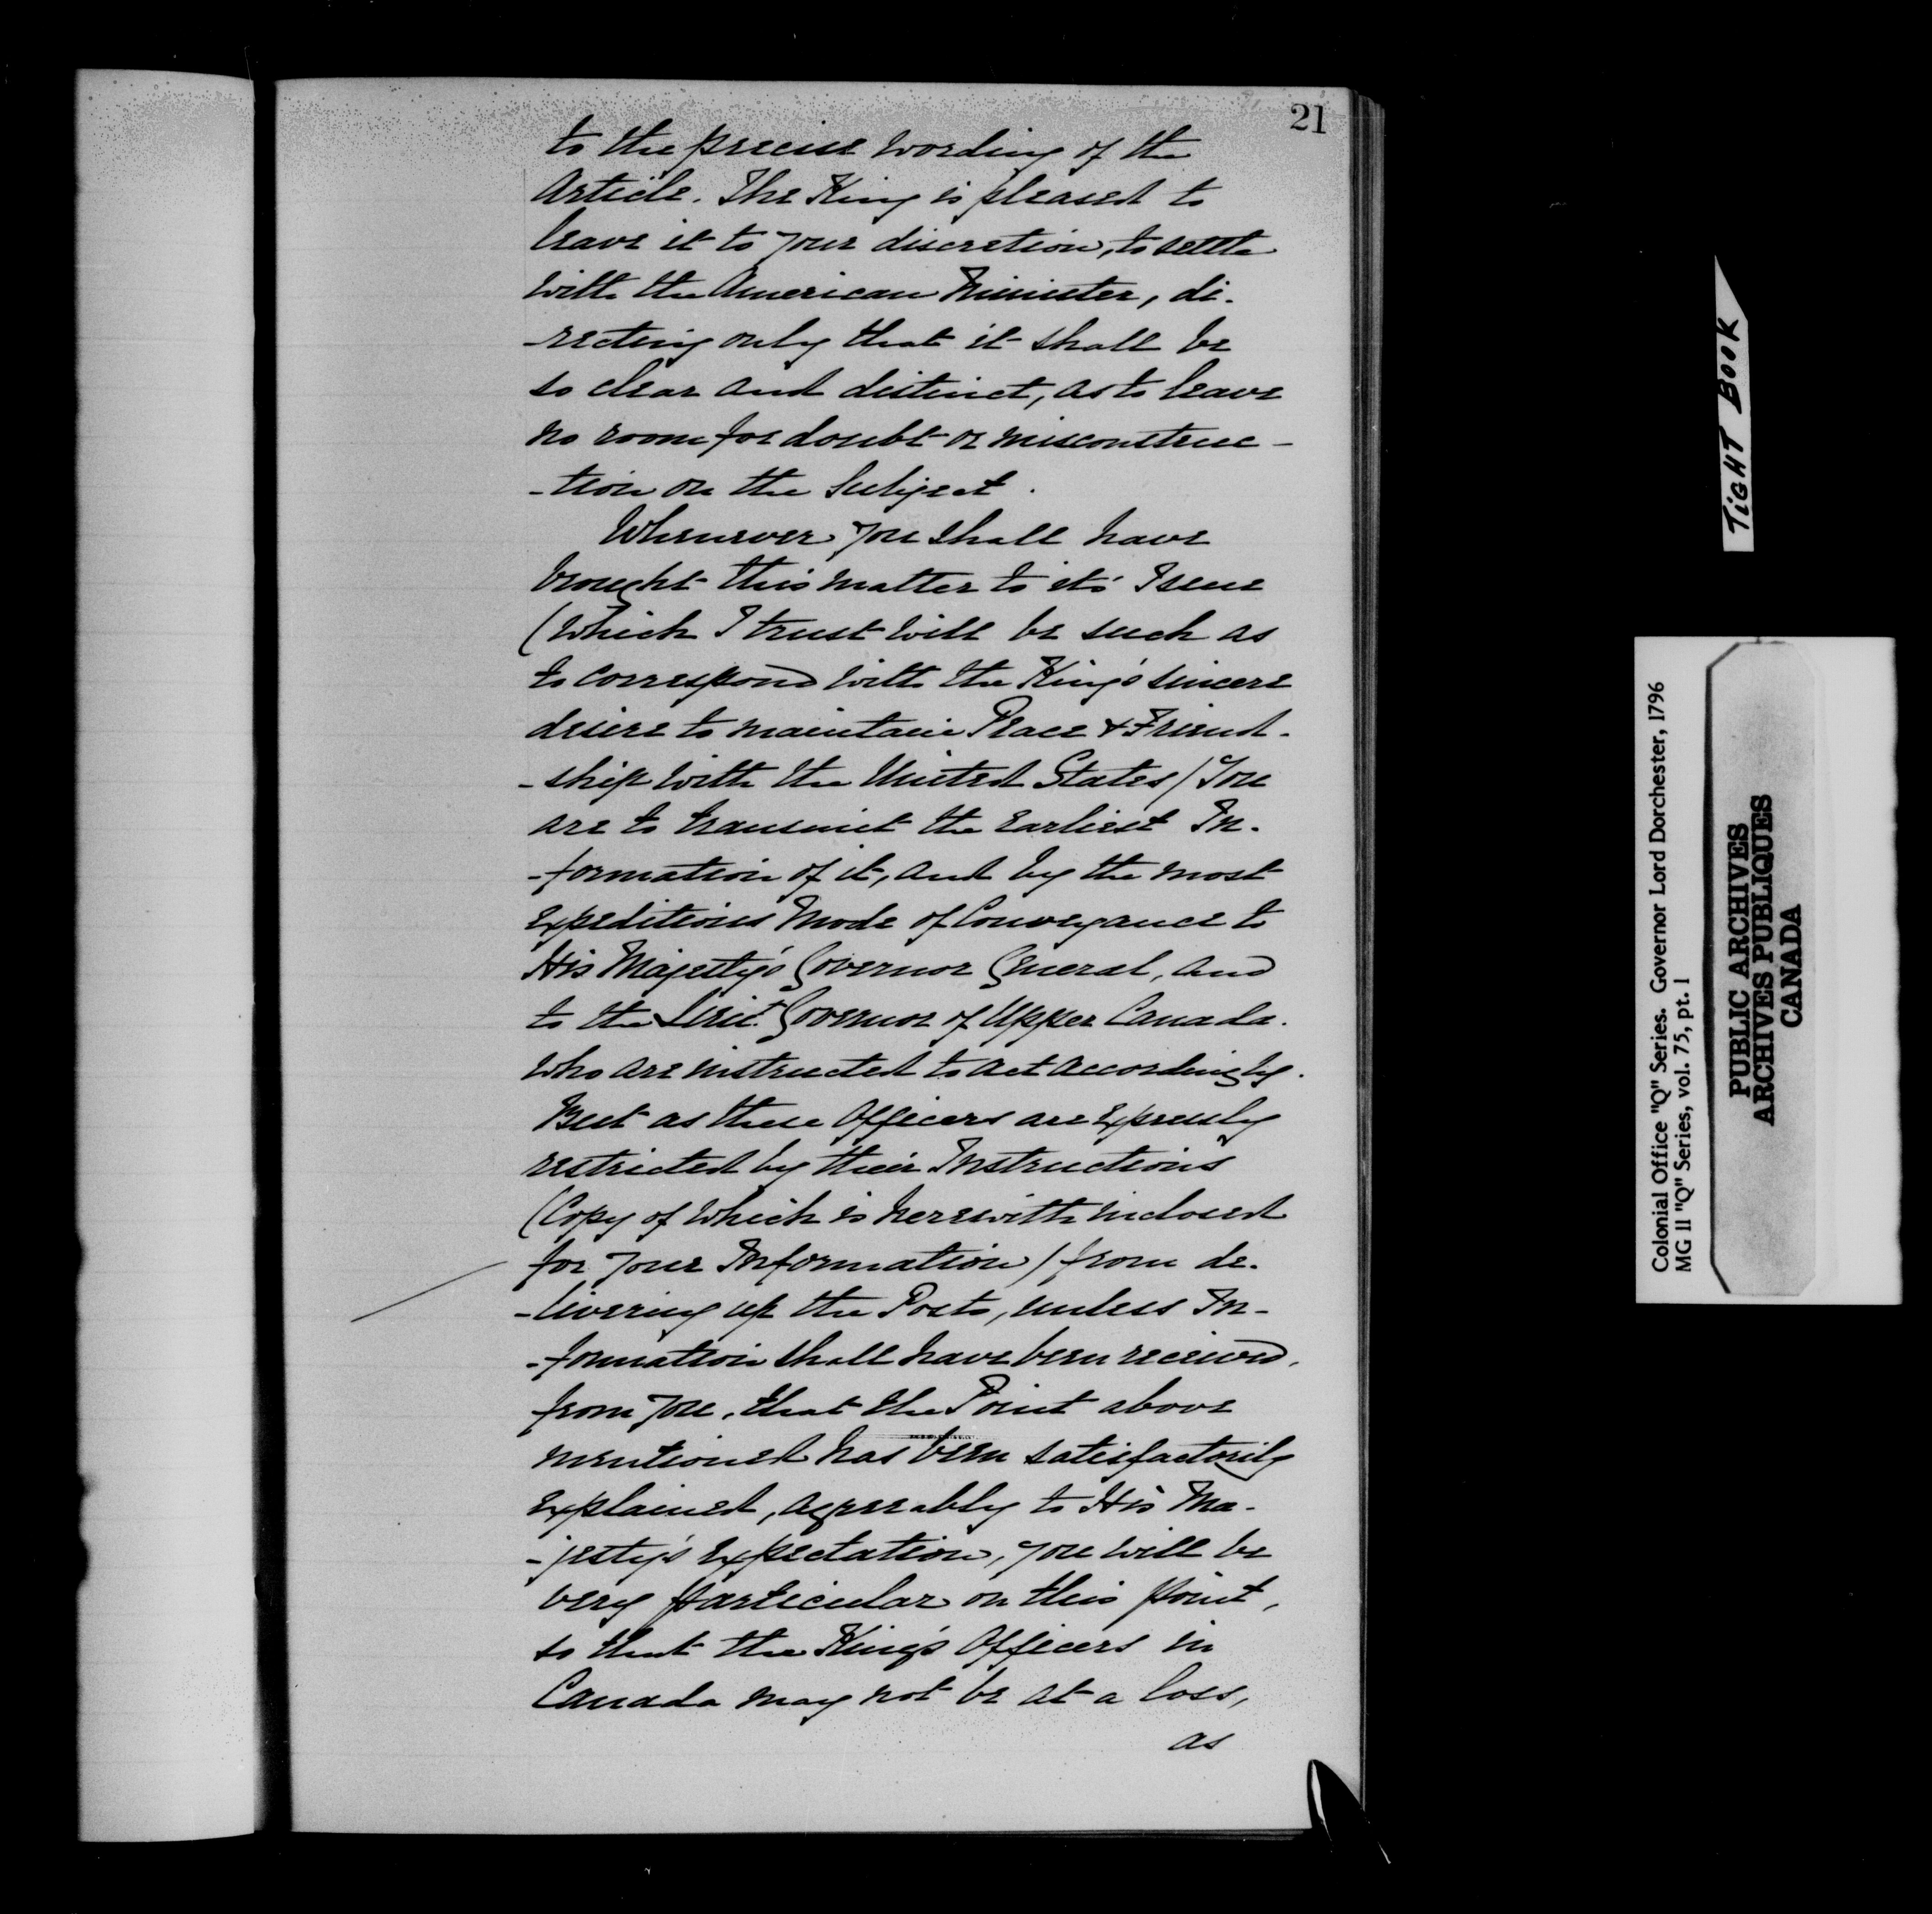 21
to the precise wording of the
Article. The King is pleased to
leave it to your discretion, to settle
with the American Minister, di-
-recting only that it shall be
so clear and distinct, as to leave
no room for doubt or misconstruc-
-tion on the Subject.
Whenever you shall have
brought this matter to it's Issue
(which I trust will be such as
to correspond with the King's sincere
desire to maintain Peace & Friend-
-ship with the United States) You
are to transmit the earliest In-
-formation of it, and by the most
expeditious Mode of Conveyance to
His Majesty's Governor General, and
to the Lieut. Governor of Upper Canada.
who are instructed to act accordingly.
But as these Officers are expressly
restricted by their Instructions
(Copy of which is herewith inclosed
for your Information) from de-
-livering up the Posts, unless In-
-formation shall have been received,
from you, that the Point above
mentioned has been satisfactorily
explained, agreeably to His Ma-
-jesty's expectation, you will be
very particular on this point,
so that the King's Officers in
Canada may not be at a loss,
as
TIGHT BOOK
Colonial Office "Q" Series. Governor Lord Dorchester, 1796
MG 11 "Q" Series, vol. 75, pt. 1
PUBLIC ARCHIVES
ARCHIVES PUBLIQUES
CANADA